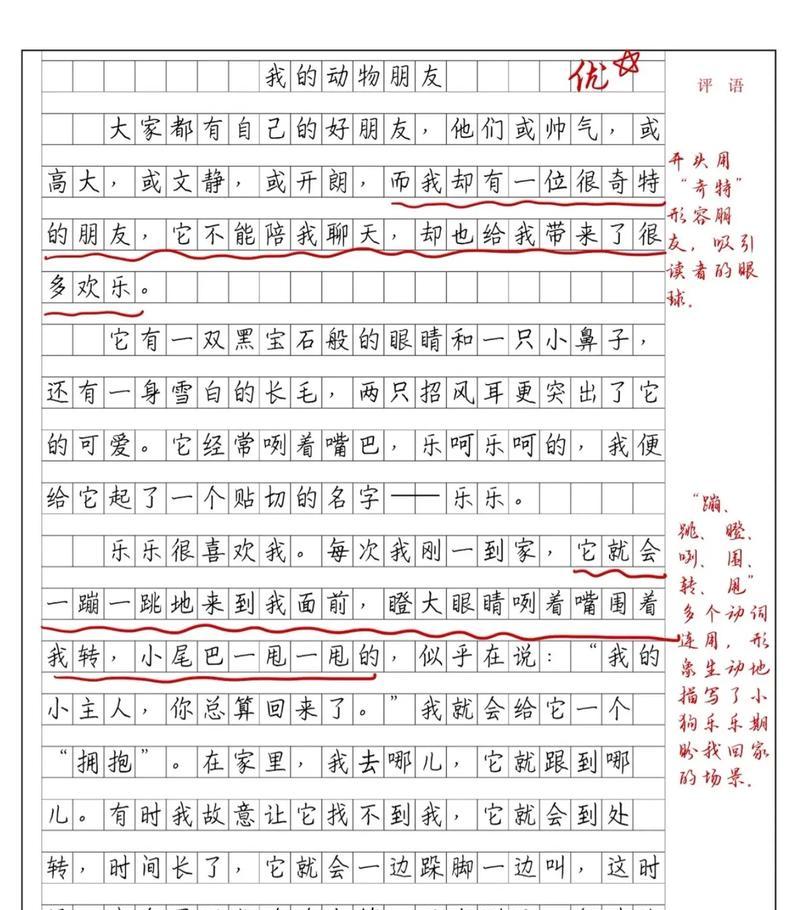 我的动物朋友
优
评语
大家都有自己的好朋友，他们或帅气，或
高大，或文静，或开朗，而我却有一位很奇特
的朋友，它不能陪我聊天，却也给我带来了很
多欢乐。
它有一双黑宝石般的眼睛和一只小鼻子，
还有一身雪白的长毛，两只招风耳更突出了它
的可爱。它经常咧着嘴巴，乐呵乐呵的，我便
给它起了一个贴切的名字——乐乐。
乐乐很喜欢我。每次我刚一到家，它就会
一蹦一跳地来到我面前，瞪大眼睛咧着嘴围着
我转，小尾巴一甩一甩的，似乎在说：“我的
小主人，你总算回来了。”我就会给它一个
“拥抱”。在家里，我去哪儿，它就跟到哪
儿。有时我故意让它找不到我，它就会到处
转，时间长了，它就会一边跺脚一边叫，这时
开头用
“奇特”
形容朋
友，吸引
读者的眼
球.
“蹦、
跳、瞪、
咧、围、
转、甩”
多个动词
连用，形
象生动地
描写了小
狗乐乐期
盼我回家
的场景.